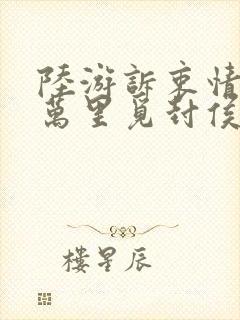 陸游訴衷情
萬里覓封侯
樓星辰